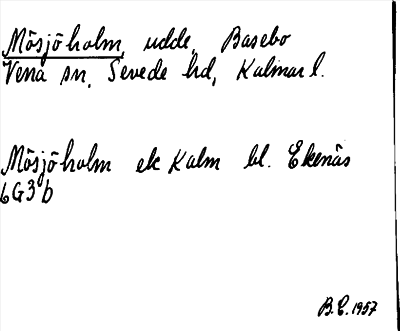 Mösjöholm, udde, Basebo
Vena sn, Sevede hd, Kalmar l.
Mösjöholm ek Kalm bl. Ekenäs
6G3b
B.E. 1957